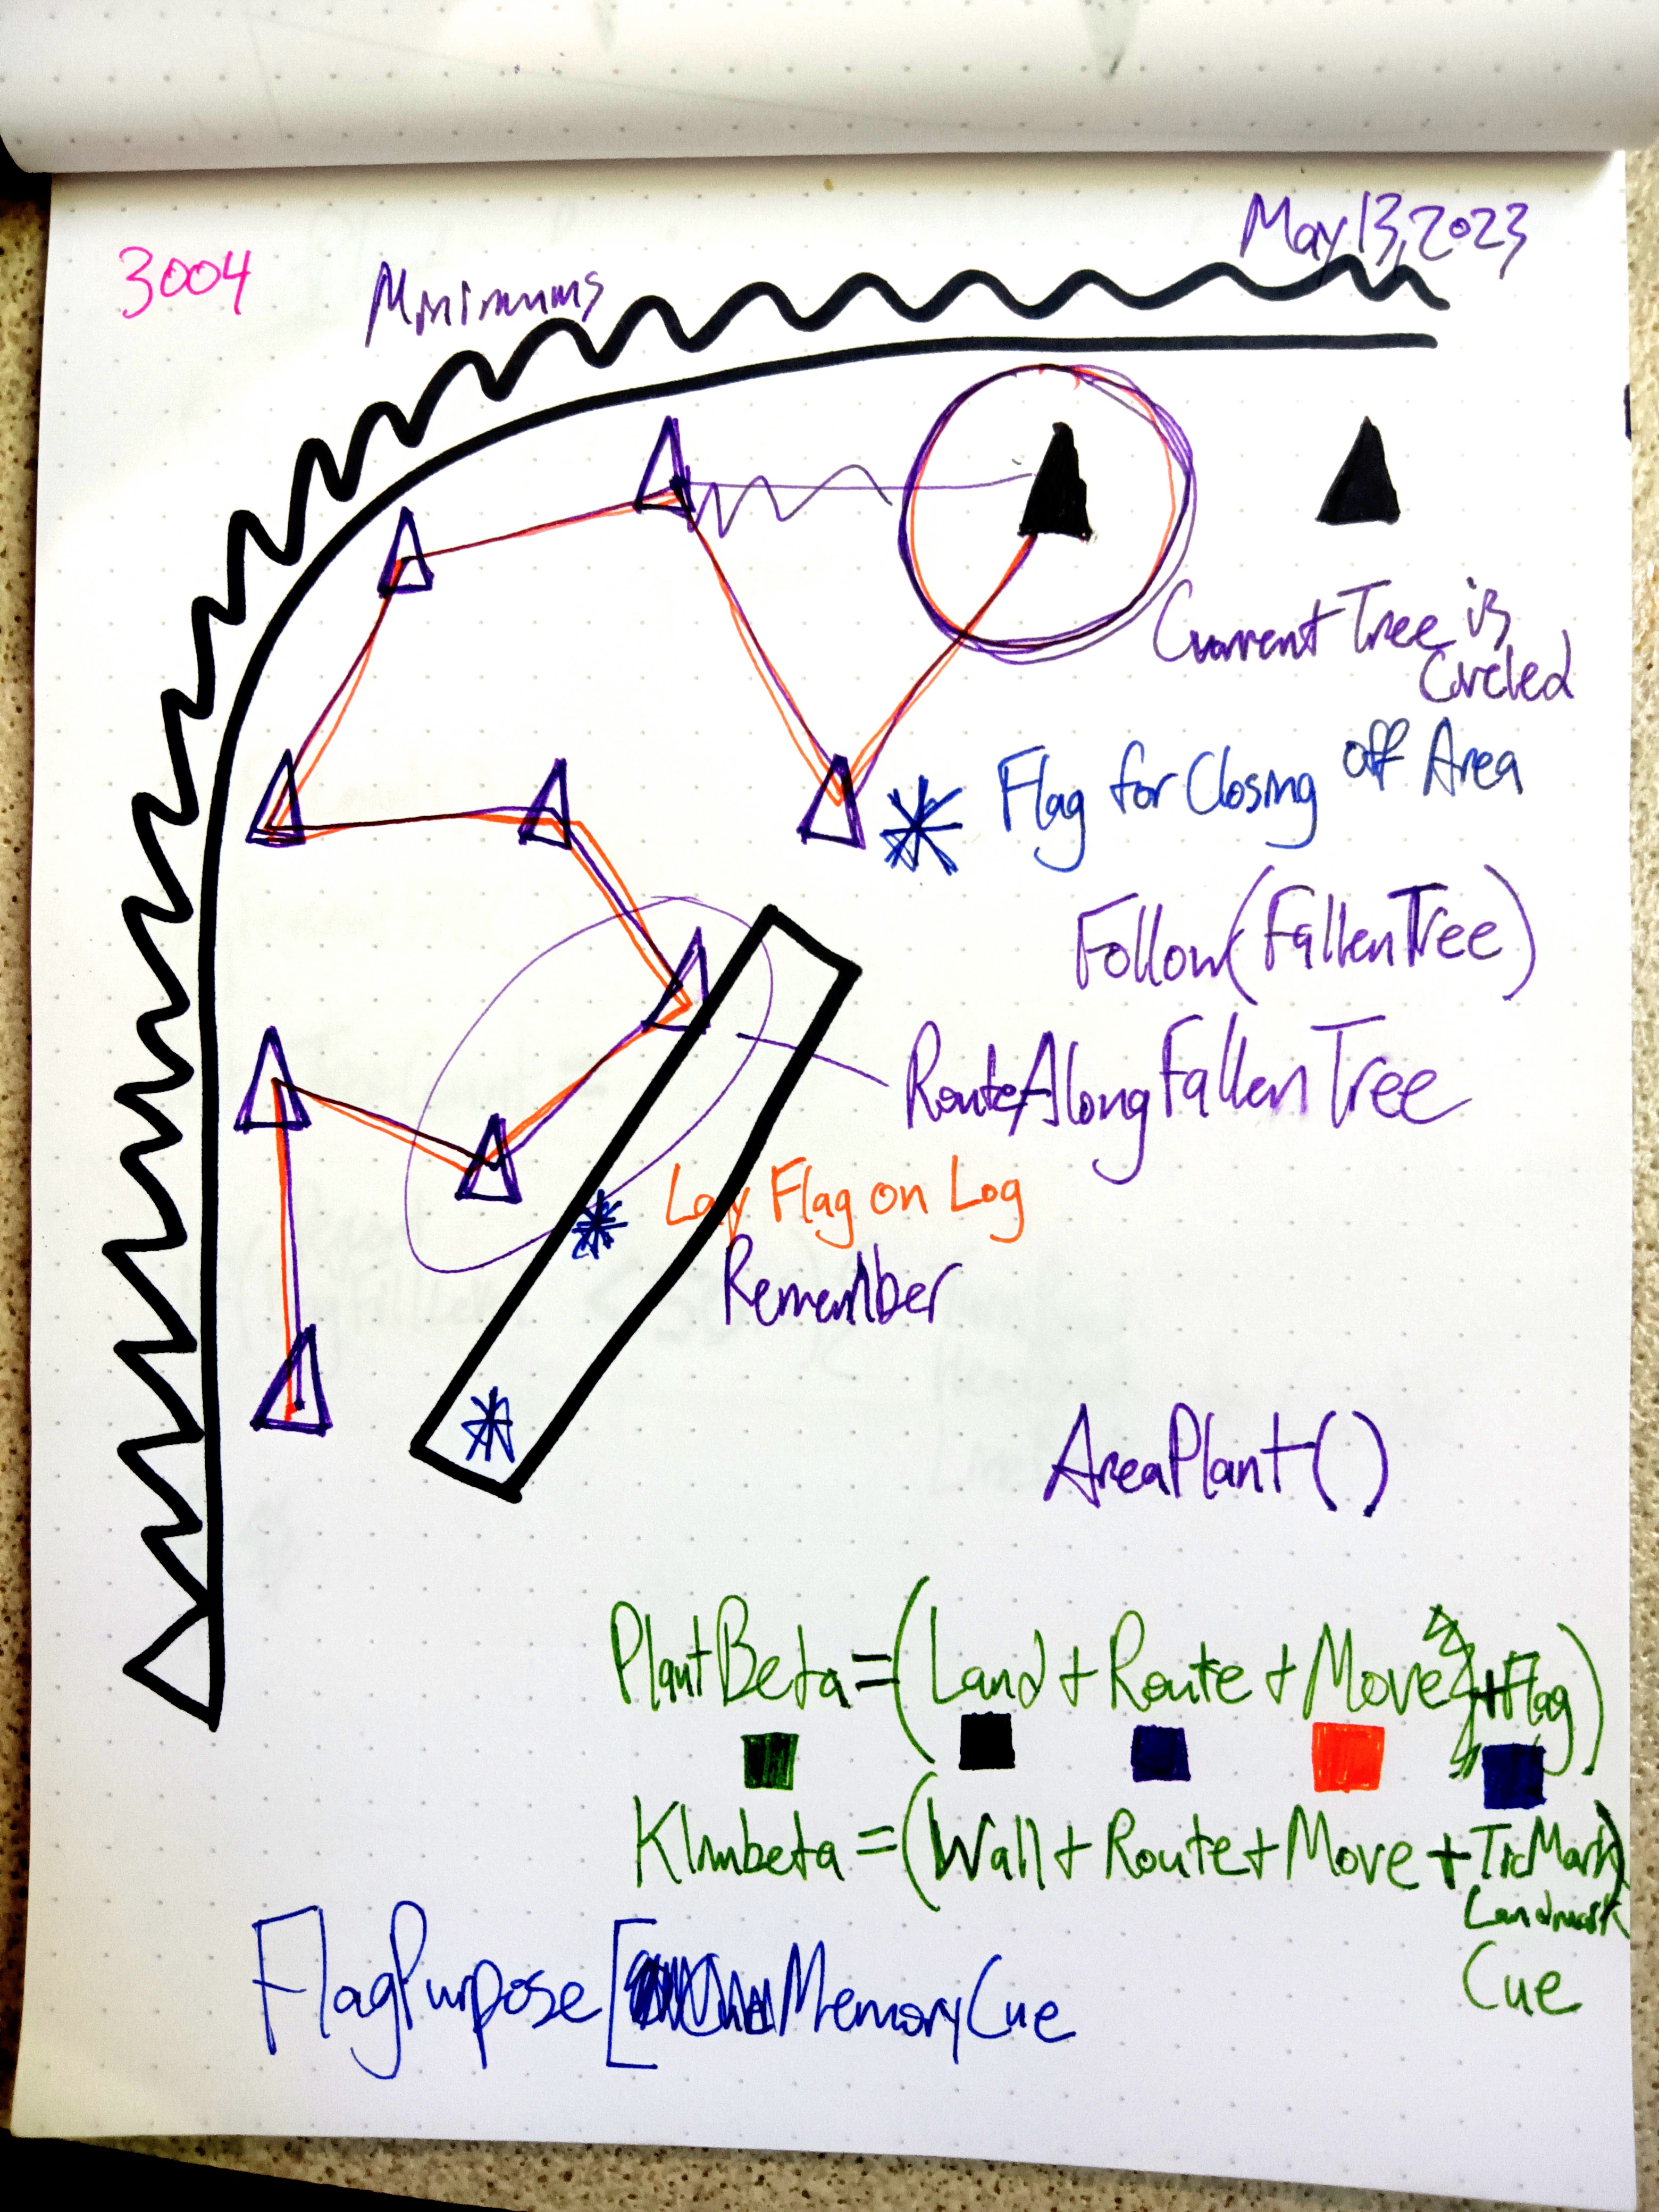 May 13, 2023
3004
Minimums
Current Tree is
Circled
Flag for Closing off Area
Follow(FallenTree)
RouteAlongFallenTree
Lay Flag on Log
Remember
AreaPlant()
PlantBeta=(Land+Route+Move+Flag)
Klmbeta=(Wall+Route+Move+TicMark)
Landmark
Cue
FlagPurpose[MemoryCue